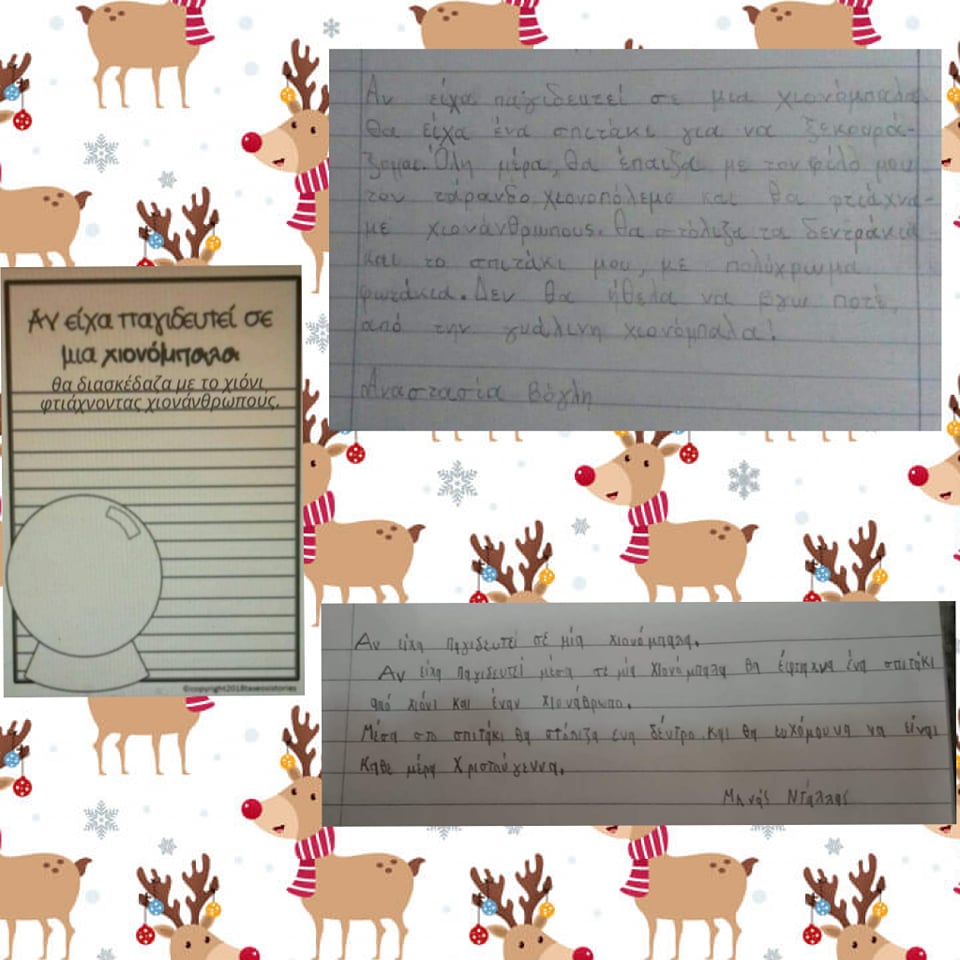 Αν είχα παγιδευτεί σε
μια χιονόμπαλα
θα διασκέδαζα με το χιόνι
φτιάχνοντας χιονάνθρωπους.
©copyright2018taxeosistories
Αν είχα παγιδευτεί σε μια χιονόμπαλα
θα είχα ένα σπιτάκι για να ξεκουρά-
ζομαι. Όλη μέρα, θα έπαιζα με τον φίλο μου
τον τάρανδο χιονοπόλεμο και θα φτιάχνα-
με χιονάνθρωπους. Θα στόλιζα τα δεντράκια
και το σπιτάκι μου, με πολύχρωμα
φωτάκια. Δεν θα ήθελα να βγω ποτέ,
από την γυάλινη χιονόμπαλα!
Αναστασία Βόγλη
Αν είχα παγιδευτεί σε μία χιονόμπαλα.
Αν είχα παγιδευτεί μέσα σε μία χιονόμπαλα θα έφτιαχνα ένα σπιτάκι
από χιόνι και έναν χιονάνθρωπο.
Μέσα στο σπιτάκι θα στόλιζα ένα δέντρο και θα ευχόμουνα να είναι
κάθε μέρα Χριστούγεννα.
Μηνάς Ντάλλας